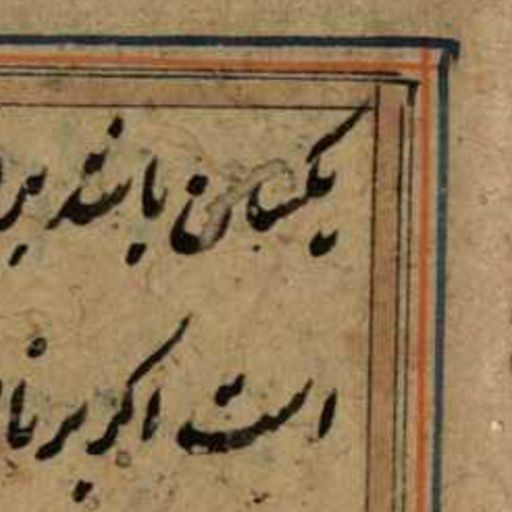 یکسان باشد بر
است اکر بر